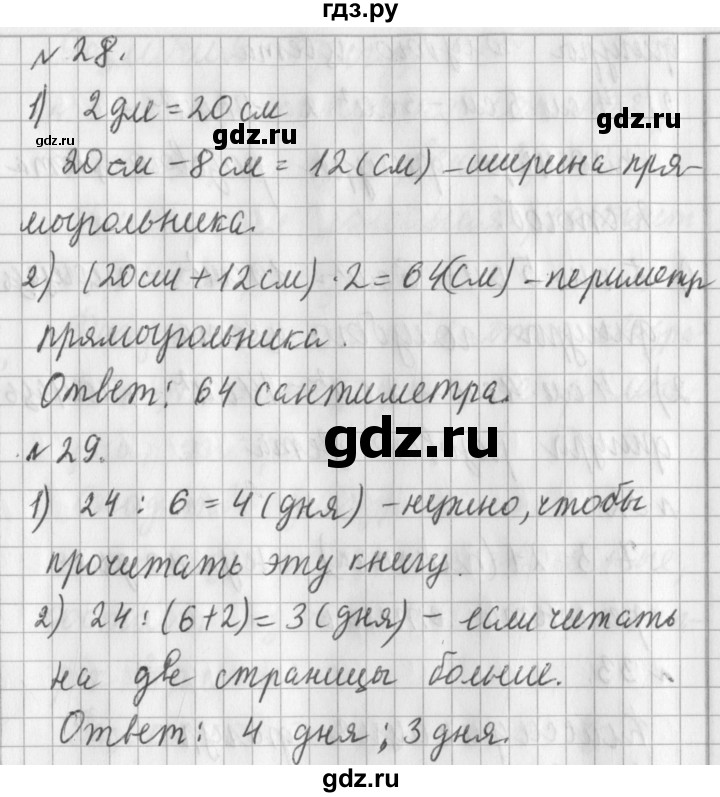 гдз.ру
№ 28.
1) 2дм = 20см
gdz.ru gdz.ru
20см - 8см = 12(см) - ширина пря-
моугольника.
2) (20см + 12см) · 2 = 64(см) - периметр
прямоугольника.
Ответ: 64 сантиметра.
gdz.ru
№ 29.
1) 24 : 6 = 4 (дня) - нужно, чтобы
прочитать эту книгу.
2) 24 : (6+2) = 3 (дня) - если читать
на две страницы больше.
Ответ: 4 дня ; 3 дня.
gdz.ru gdz.ru
gdz.ru